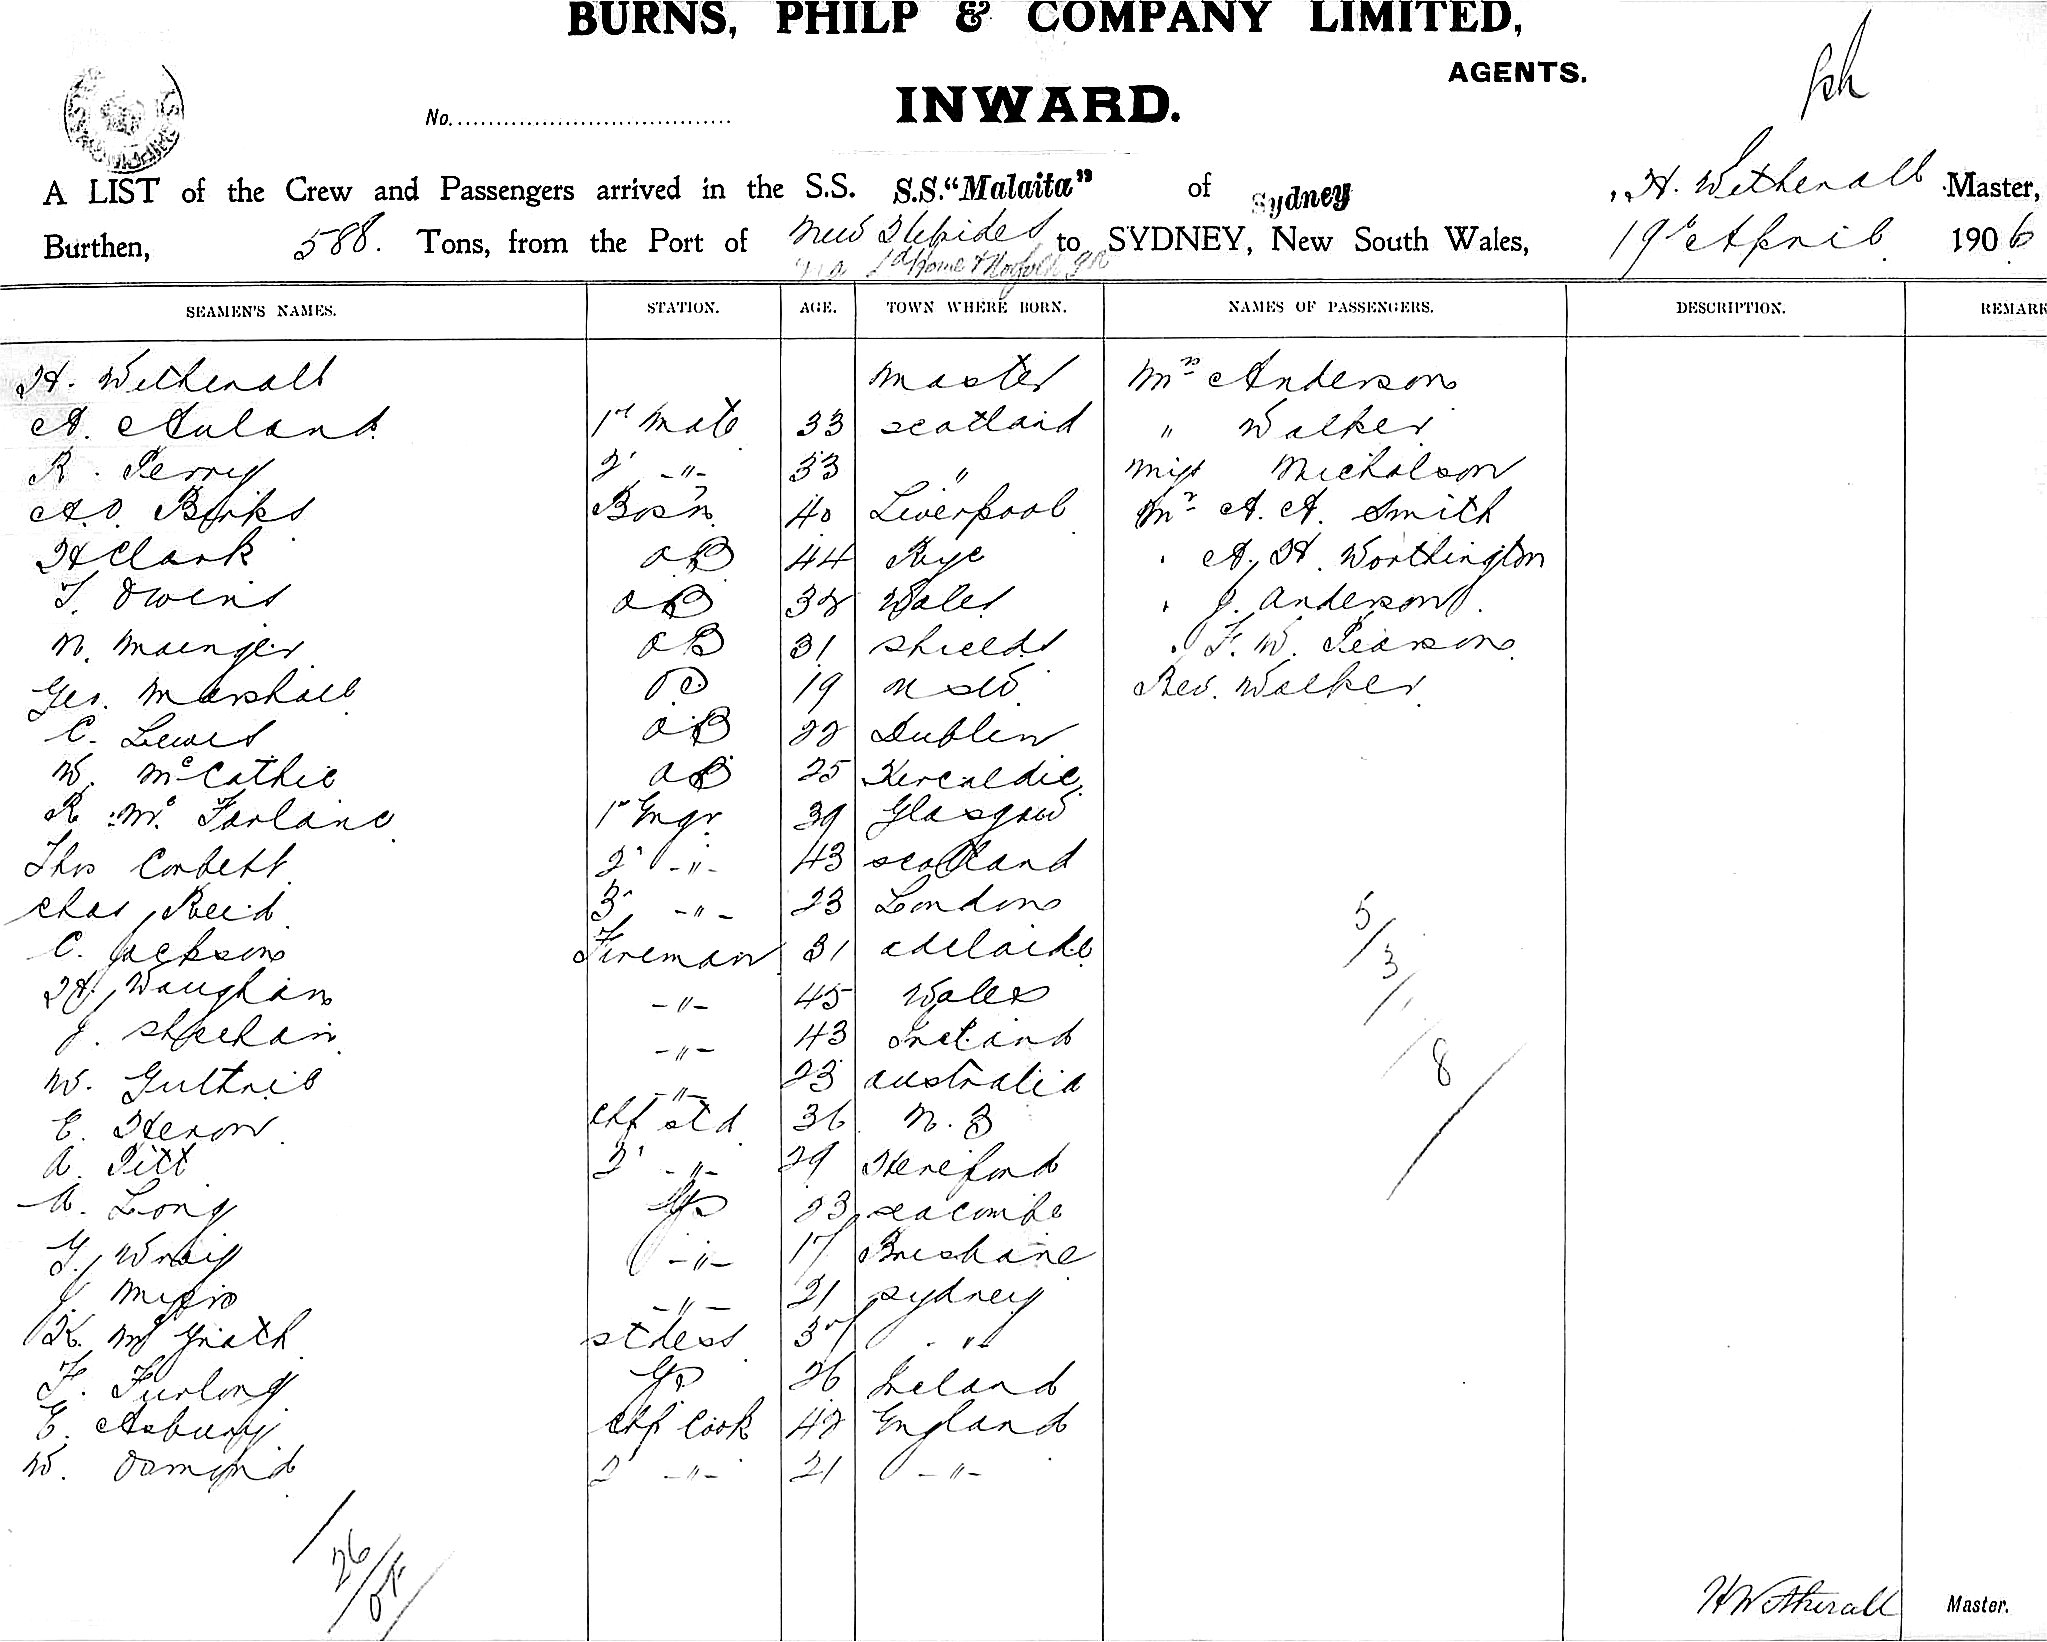 BURNS, PHILP & COMPANY LIMITED,
AGENTS.
INWARD.
No.
A LIST of the Crew and Passengers arrived in the S.S. S.S. "Malaita" of Sydney, H. Wetherall Master,
Burthen, 588. Tons, from the Port of New Hebrides to SYDNEY, New South Wales, 19th April 1906
via Ld Howe & Norfolk Is
SEAMEN'S NAMES. STATION. AGE. TOWN WHERE BORN. NAMES OF PASSENGERS. DESCRIPTION. REMARK
H. Wetherall Master Mrs Anderson
A. Auland 1st Mate 33 Scotland " Walker
R. Perry 2' -"- 33 " Miss Nicholson
A.O. Birks Bosn 40 Liverpool Mr A. A. Smith
H Clark AB 44 Rye A. H. Worthington
T. Owens AB 32 Wales J. Anderson
N. Mainger AB 31 Shields F. W. Pearson
Geo. Marshall 19 NSW Rev. Walker
C. Lewis AB 22 Dublin
W. McCathie AB 25 Kercaldie
R. McFarlane 1st Engr 39 Glasgow
Thos Corbett 2' -"- 43 Scotland
Chas Reid 3' -"- 23 London
C. Jackson Fireman 31 Adelaide
H. Vaughan -"- 45 Wales
J. Sheehan -"- 43 Ireland
W. Guthrie -"- 23 Australia
E. Heron Chf Std 36 N. Z
A. Pitt 2' -"- 29 Hereford
A. Long 23 Seacombe
G. Wraig -"- 17 Brisbane
J. Munro -"- 21 Sydney
K. McGrath Stdess 37 "
F. Furlong 26 Ireland
E. Asbury Chf Cook 42 England
W. Osmond 2' -"- 21 -"-
5/3/8
26
H Wetherall Master.